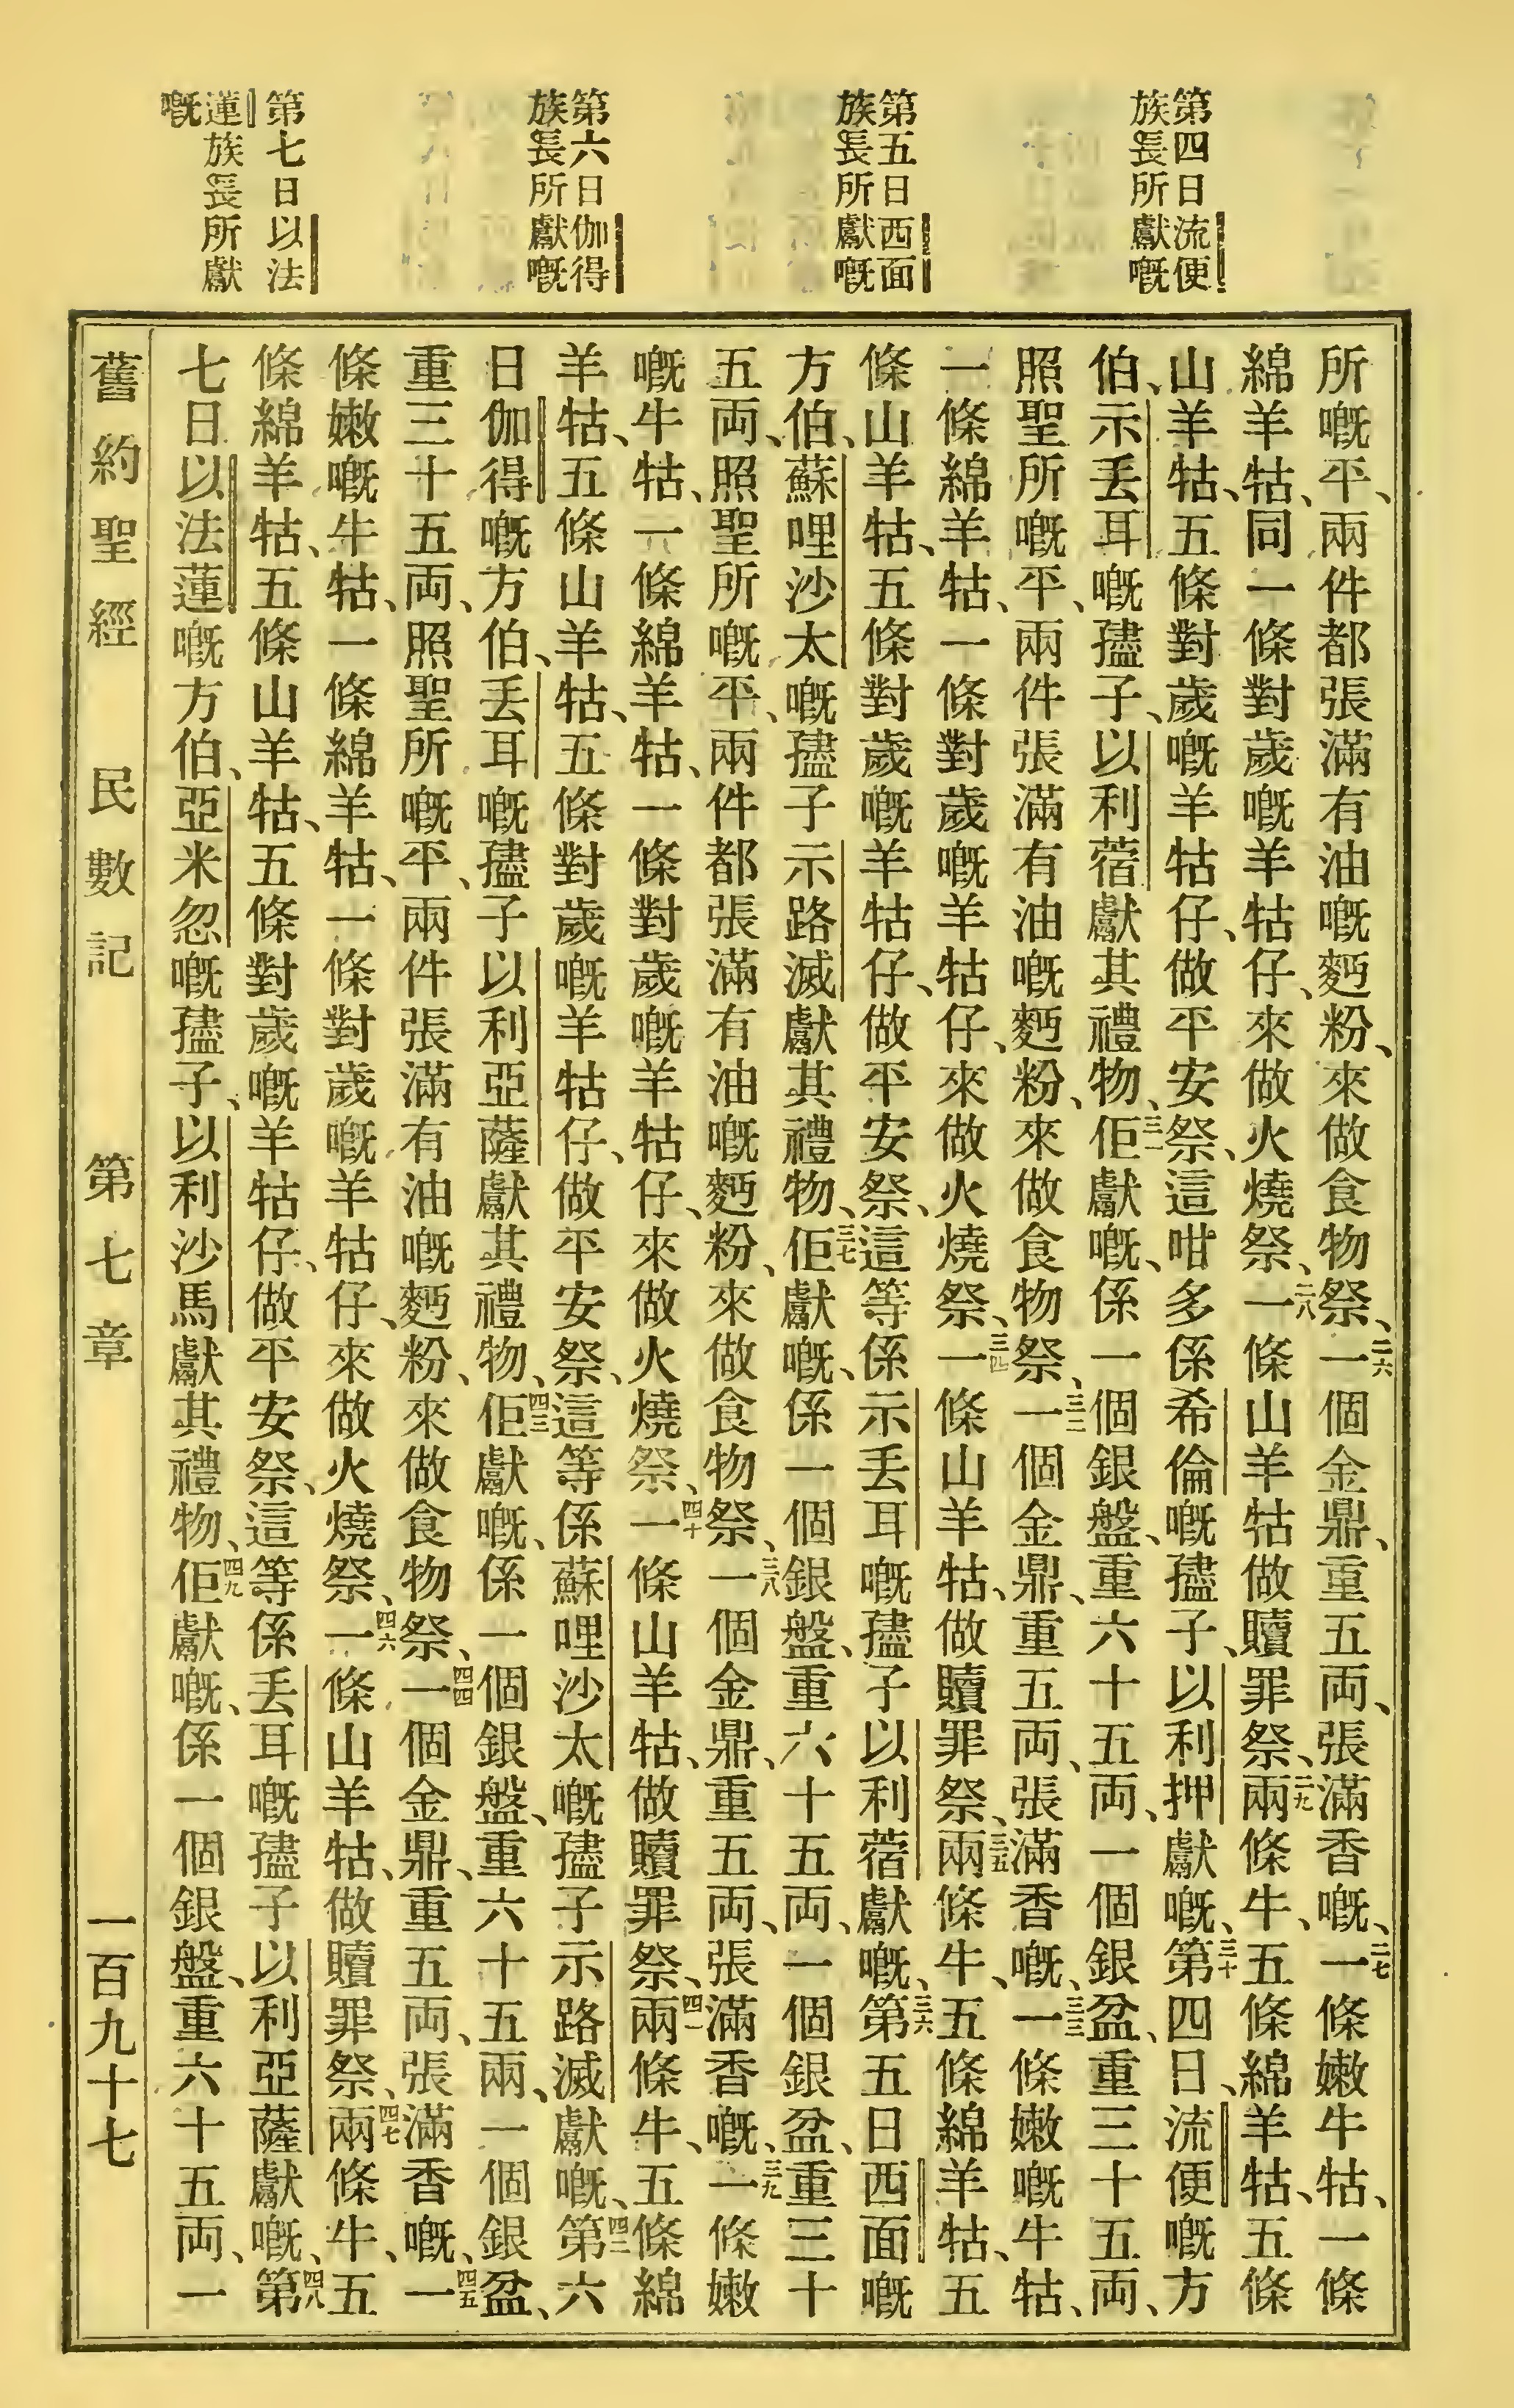 第四日流便
族長所獻嘅
第五日西面
族長所獻嘅
第六日伽得
族長所獻嘅
第七日以法
蓮族長所獻
嘅
所嘅平、兩件都張滿有油嘅麪粉、來做食物祭、二六一個金鼎、重五両、張滿香嘅、二七一條嫩牛牯、一條
綿羊牯、同一條對歲嘅羊牯仔、來做火燒祭、二八一條山羊牯做贖罪祭、二九兩條牛、五條綿羊牯、五條
山羊牯、五條對歲嘅羊牯仔、做平安祭、這咁多係希倫嘅𡥧子、以利押獻嘅、三十第四日、流便嘅方
伯、示丢耳嘅𡥧子、以利蓿獻其禮物、三一佢獻嘅、係一個銀盤、重六十五両、一個銀盆、重三十五両、
照聖所嘅平、兩件張滿有油嘅麪粉、來做食物祭、三二一個金鼎、重五両、張滿香嘅、三三一條嫩嘅牛牯、
一條綿羊牯、一條對歲嘅羊牯仔、來做火燒祭、三四一條山羊牯、做贖罪祭、三五兩條牛、五條綿羊牯、五
條山羊牯、五條對歲嘅羊牯仔、做平安祭、這等係示丢耳嘅𡥧子以利蓿獻嘅、三六第五日西面嘅
方伯、蘇哩沙太嘅𡥧子示路滅獻其禮物、三七佢獻嘅、係一個銀盤、重六十五両、一個銀盆、重三十
五両、照聖所嘅平、兩件都張滿有油嘅麪粉、來做食物祭、三八一個金鼎、重五両、張滿香嘅、三九一條嫩
嘅牛牯、一條綿羊牯、一條對歲嘅羊牯仔、來做火燒祭、四十一條山羊牯、做贖罪祭、四一兩條牛、五條綿
羊牯、五條山羊牯、五條對歲嘅羊牯仔、做平安祭、這等係蘇哩沙太嘅𡥧子示路滅獻嘅、四二第六
日伽得嘅方伯、丢耳嘅𡥧子以利亞薩獻其禮物、四三佢獻嘅、係一個銀盤、重六十五兩、一個銀盆、
重三十五両、照聖所嘅平、兩件張滿有油嘅麪粉、來做食物祭、四四一個金鼎、重五両、張滿香嘅、四五一
條嫩嘅牛牯、一條綿羊牯、一條對歲嘅羊牯仔、來做火燒祭、四六一條山羊牯、做贖罪祭、四七兩條牛、五
條綿羊牯、五條山羊牯、五條對歲嘅羊牯仔、做平安祭、這等係丢耳嘅𡥧子以利亞薩獻嘅、四八第
七日以法蓮嘅方伯、亞米忽嘅𡥧子、以利沙馬獻其禮物、四九佢獻嘅、係一個銀盤、重六十五両、一
舊約聖經 民數記 第七章 一百九十七